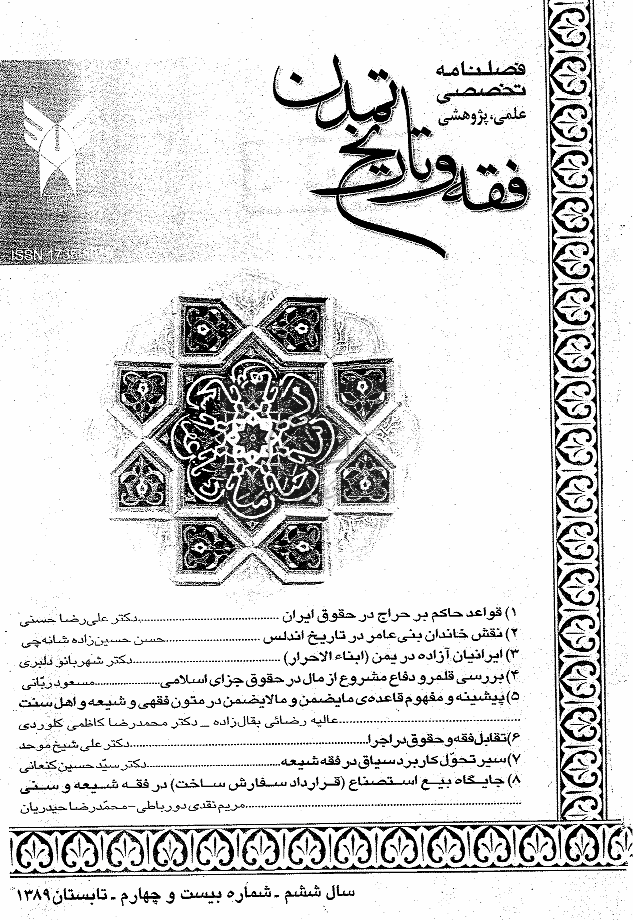 فصلنامه
تخصصی
علمی، پژوهشی
فقه و تاریخ تمدن
ISSN 1735
۱) قواعد حاکم بر حراج در حقوق ایران ........ دکتر علی‌رضا حسنی
۲) نقش خاندان بنی‌عامر در تاریخ اندلس ........ حسن حسین‌زاده شانه‌چی
۳) ایرانیان آزاده در یمن (ابناء الاحرار) ........ دکتر شهربانو دلبری
۴) بررسی قلمرو دفاع مشروع از مال در حقوق جزای اسلامی ........ مسعود ربّانی
۵) پیشینه و مفهوم قاعده‌ی مایضمن و مالایضمن در متون فقهی و شیعه و اهل سنت
........ عالیه رضائی بقال‌زاده _ دکتر محمدرضا کاظمی کلوردی
۶) تقابل فقه و حقوق در اجرا ........ دکتر علی شیخ موحد
۷) سیر تحوّل کاربرد سیاق در فقه شیعه ........ دکتر سیّد حسین کنعانی
۸) جایگاه بیع استصناع (قرارداد سفارش ساخت) در فقه شیعه و سنی
........ مریم نقدی دورباطی - محمّدرضا حیدریان
سال ششم ـ شماره بیست و چهارم ـ تابستان ۱۳۸۹